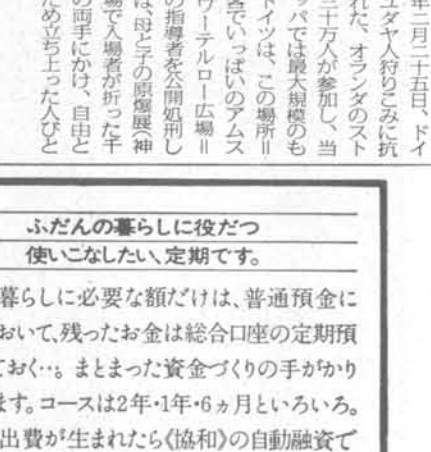 年二月二十五日、ドイ
ユダヤ人狩りこみに抗
れた、オランダのスト
三十万人が参加し、当
ッパでは最大規模のも
ドイツは、この場所＝
客でいっぱいのアムス
ワーテルロー広場＝
の指導者を公開処刑し
は、母と子の原爆展（神
場で入場者が折った千
の両手にかけ、自由と
ため立ち上った人びと
ふだんの暮らしに役だつ
使いこなしたい、定期です。
暮らしに必要な額だけは、普通預金に
おいて、残ったお金は総合口座の定期預
ておく…。まとまった資金づくりの手がかり
ます。コースは2年・1年・6ヵ月といろいろ。
出費が生まれたら《協和》の自動融資で